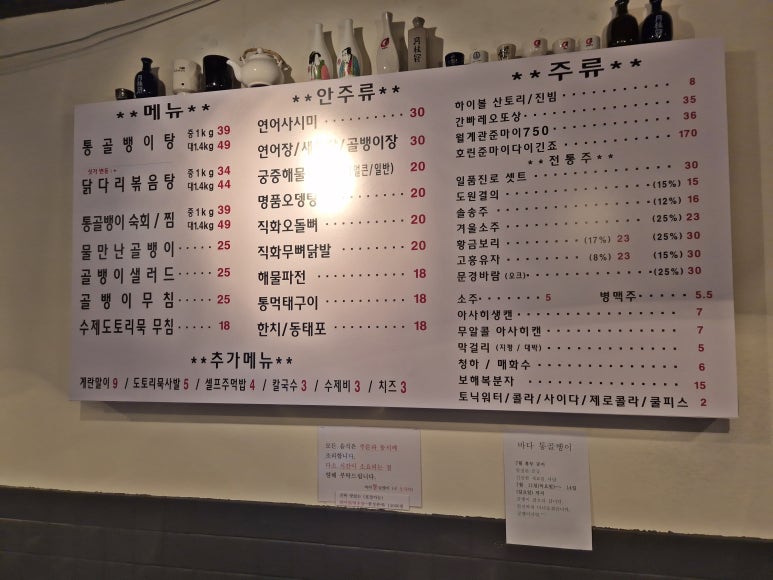 **메뉴**
통골뱅이탕 중1kg 39
대1.4kg 49
싯가 변동
닭다리볶음탕 중1kg 34
대1.4kg 44
통골뱅이 숙회/찜 중1kg 39
대1.4kg 49
물 만난 골뱅이 ····· 25
골뱅이샐러드 ····· 25
골뱅이무침 ····· 25
수제도토리묵 무침 ····· 18
**안주류**
연어사시미 ········ 30
연어장/새 /골뱅이장 30
궁중해물 /일반) 20
명품오뎅탕 ········ 20
직화오돌뼈 ········ 20
직화무뼈닭발 ········ 20
해물파전 ········ 18
통먹태구이 ········ 18
한치/동태포 ········ 18
**추가메뉴**
계란말이 9 / 도토리묵사발 5 / 셀프주먹밥 4 / 칼국수 3 / 수제비 3 / 치즈 3
**주류**
하이볼 산토리/진빔 ········ 8
간빠레오또상 ········ 35
월계관준마이750 ········ 36
호린준마이다이긴죠 ········ 170
**전통주**
일품진로 셋트 ········ 30
도원결의 ········ (15%) 15
솔송주 ········ (12%) 16
겨울소주 ········ (25%) 23
황금보리 ········ (17%) 23 (25%) 30
고흥유자 ········ (8%) 23 (15%) 30
문경바람 (오크) ········ (25%) 30
소주 ········ 5 병맥주 ····· 5.5
아사히생캔 ········ 7
무알콜 아사히캔 ········ 7
막걸리 (지평 / 대박) ········ 5
청하 / 매화수 ········ 6
보해복분자 ········ 15
토닉워터/콜라/사이다/제로콜라/쿨피스 2
모든 음식은 주문과 동시에
조리합니다.
다소 시간이 소요되는 점
양해 부탁드립니다.
바다 통골뱅이